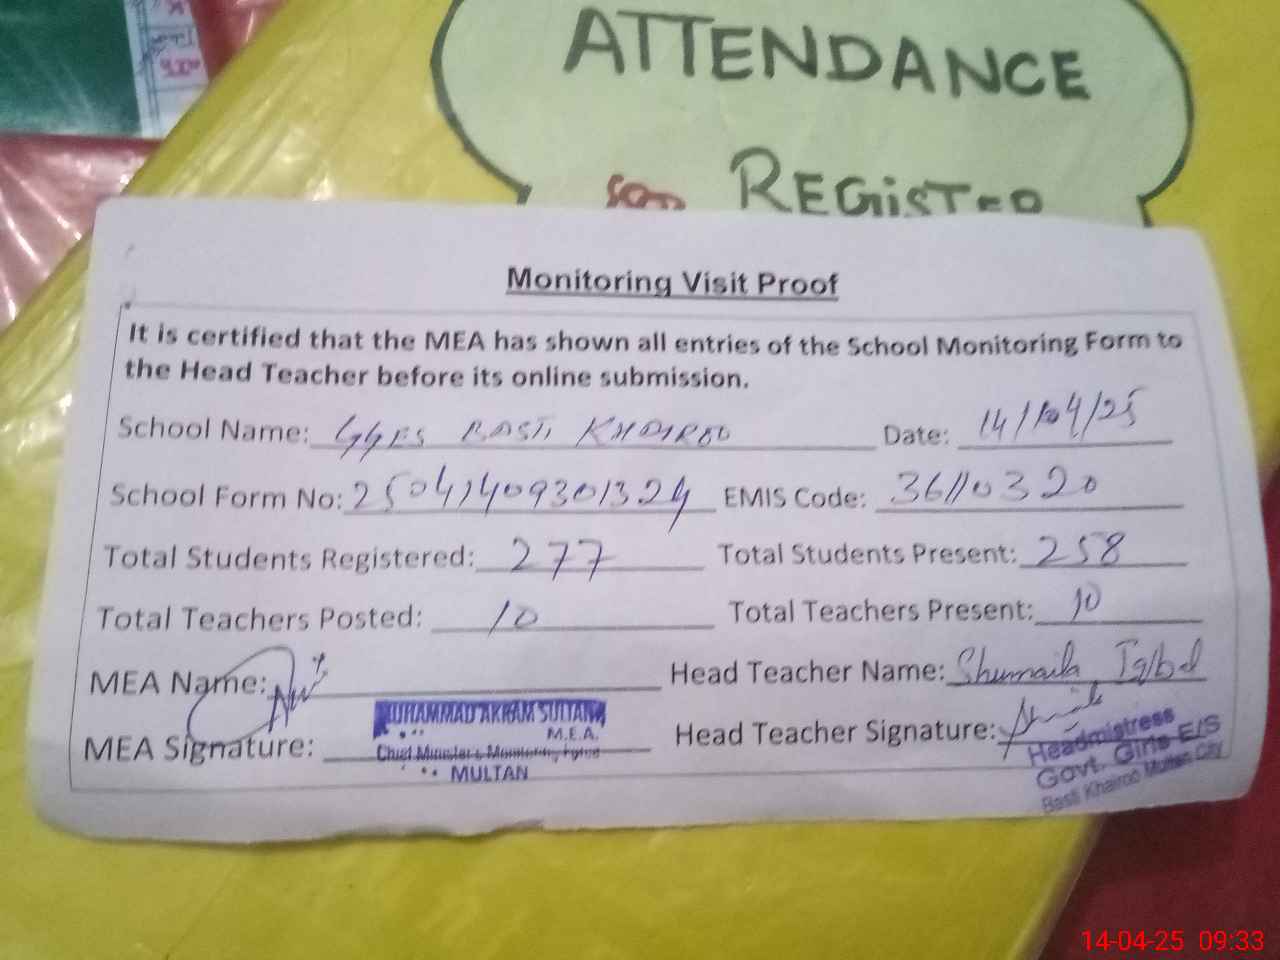 ATTENDANCE
REGISTER
Monitoring Visit Proof
It is certified that the MEA has shown all entries of the School Monitoring Form to
the Head Teacher before its online submission.
School Name: GGES BASTI KHAIROO Date: 14/04/25
School Form No: 25041409301324 EMIS Code: 36110320
Total Students Registered: 277 Total Students Present: 258
Total Teachers Posted: 10 Total Teachers Present: 10
MEA Name: Head Teacher Name: Shumaila Iqbal
MUHAMMAD AKRAM SULTAN
M.E.A.
MEA Signature: Head Teacher Signature:
Chief Minister's Monitoring Force
MULTAN
Headmistress
Govt. Girls E/S
Basti Khairoo Multan City
14-04-25 09:33